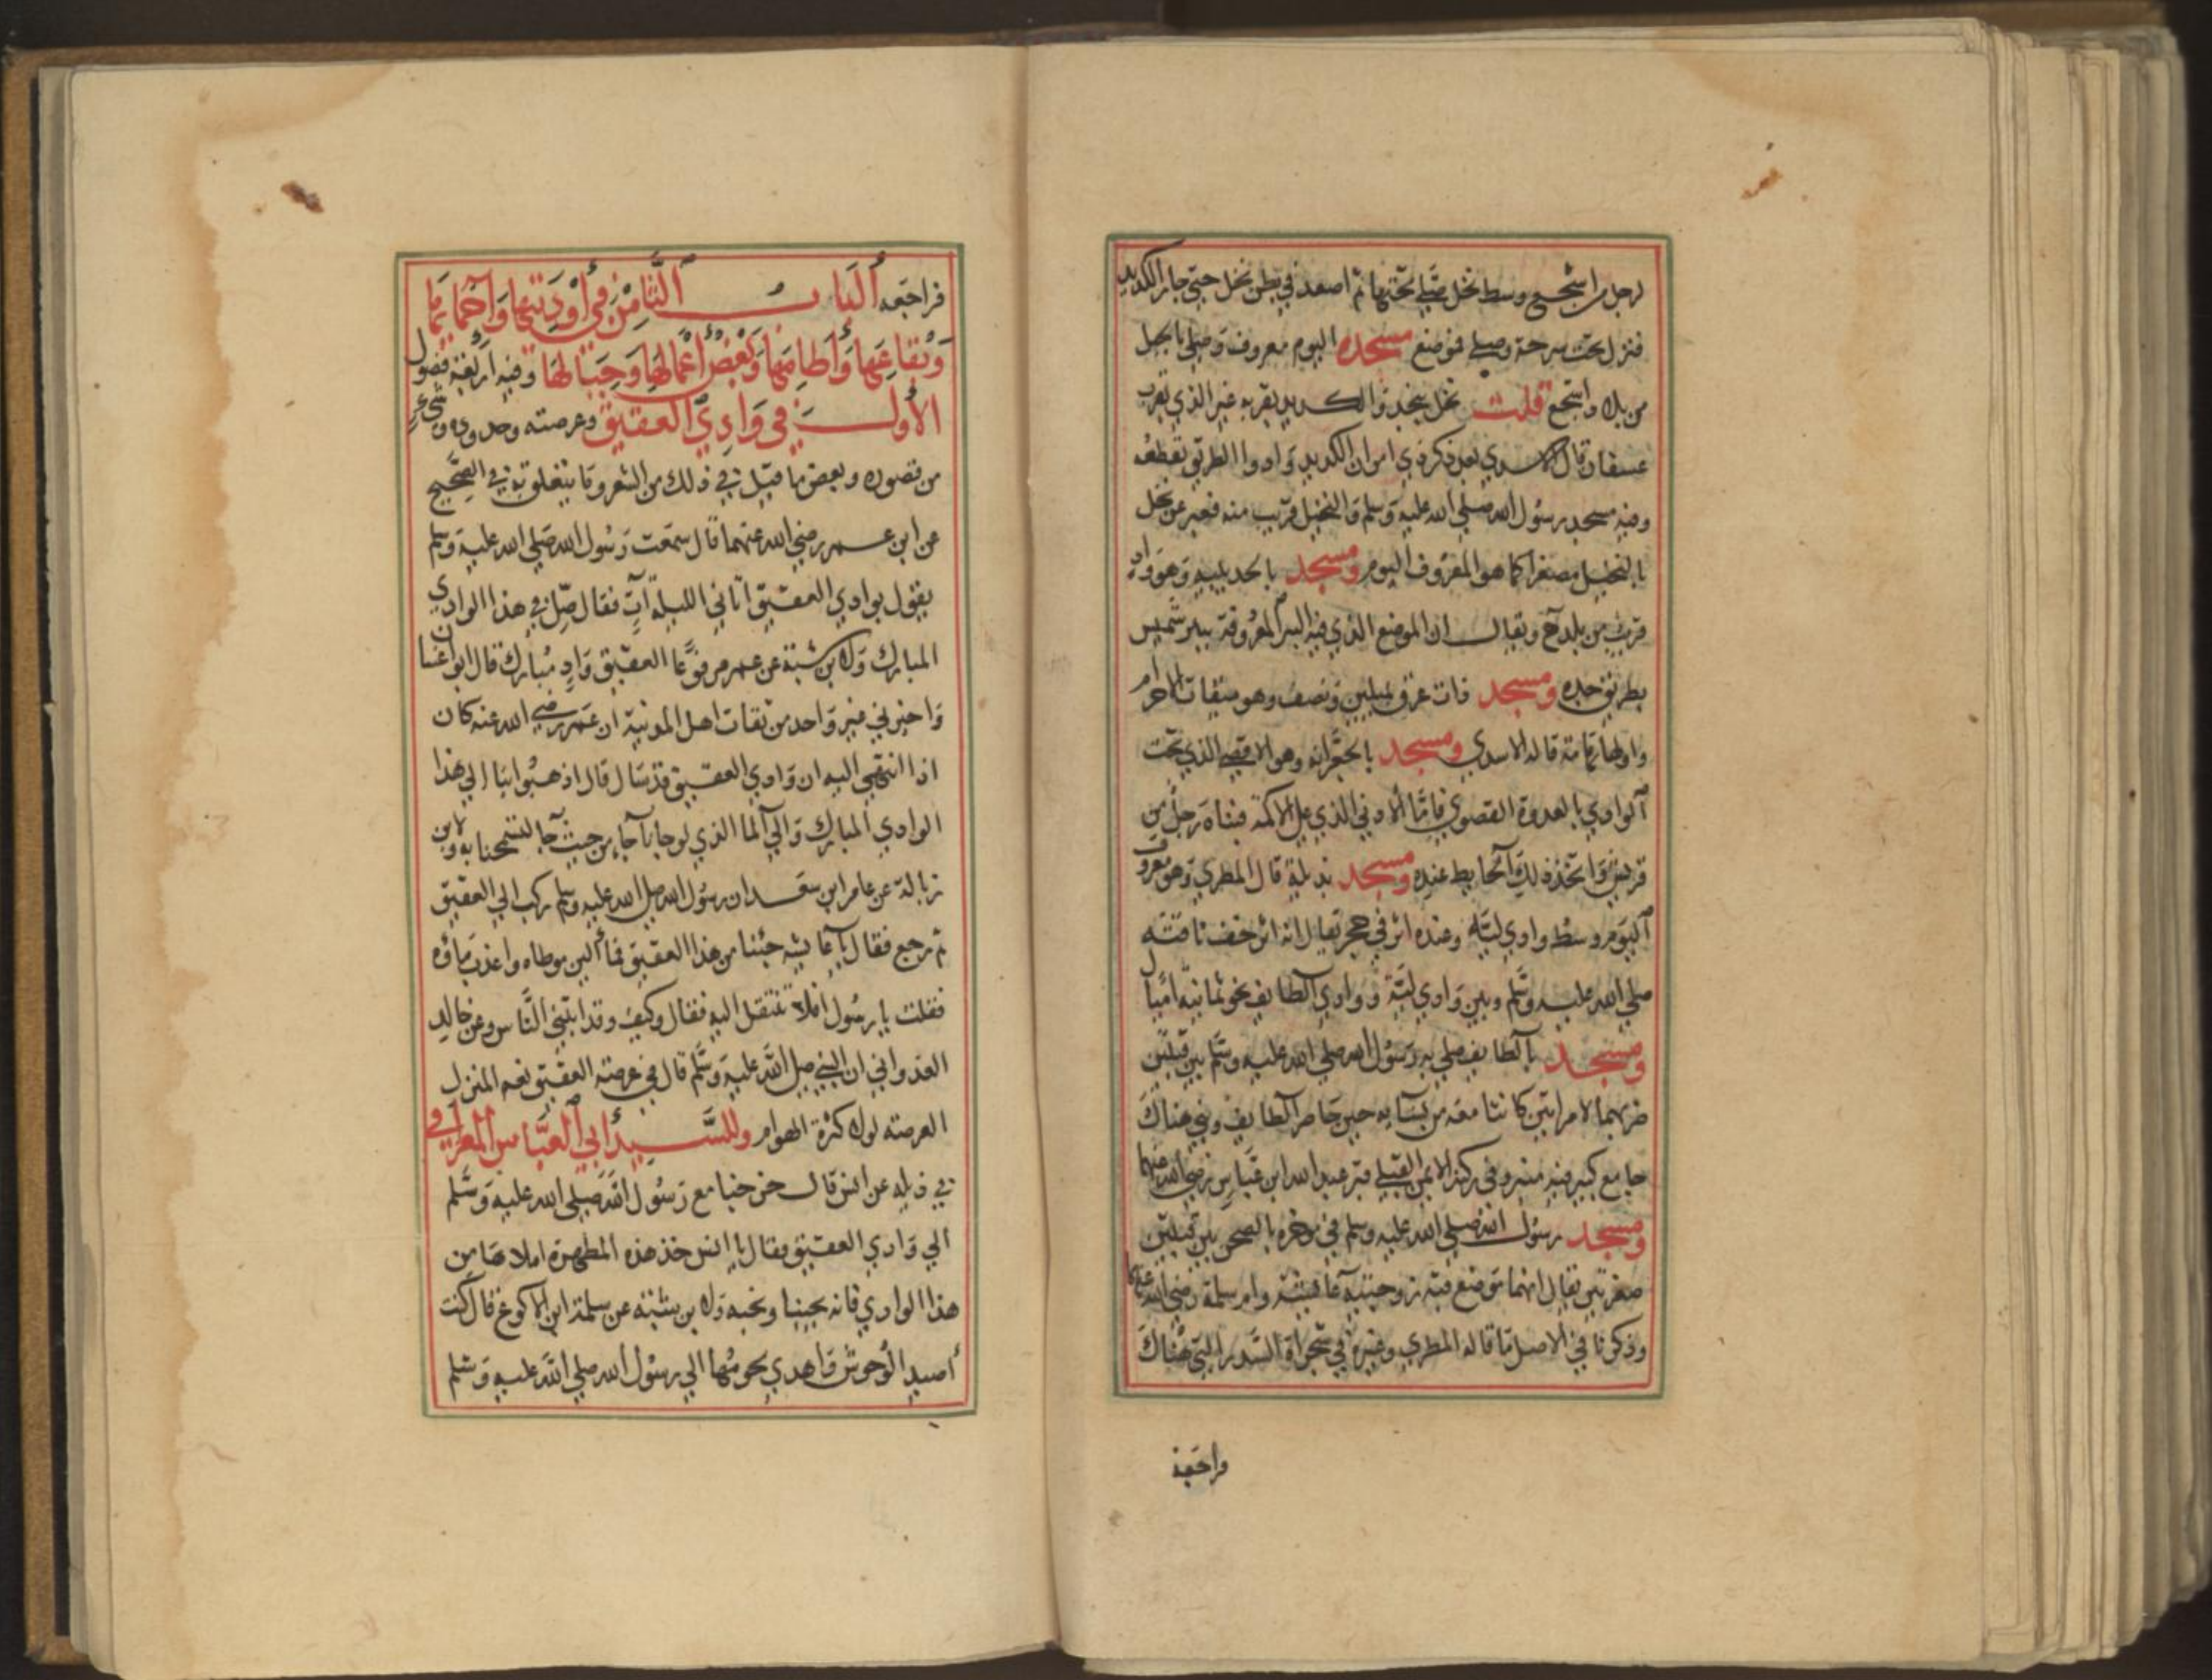 لرجل من اشجع وسط نخل صلي تحتها ثم اصعد في بطن نخل حتي جاز الكديد
فنزل تحت سرحة وصلي فموضع مسجده اليوم معروف وصلي بالجبل
من بلاد اشجع قلت نخل بنجد والكديد بقربه غير الذي بقرب
عسفان قال الاسدي بعد ذكر ذي امر ان الكديد واد والطريق تقطعه
وفيه مسجد رسول الله صلي الله عليه وسلم والنخيل قريب منه فعبر عن نخل
بالنخيل مصغرا كما هو المعروف اليوم ومسجد بالحديبية وهو واد
قريب من بلدح ويقال ان الموضع الذي فيه البير المعروفة ببير شميس
بطريق جده ومسجد ذات عرق بميلين ونصف وهو ميقات الاحرام
واولها تهامة قاله الاسدي ومسجد بالجعرانه وهو الاقصي الذي تحت
الوادي بالعدوة القصوي فاما الادني الذي علي الاكمة فبناه رجل من
قريش واتخذ ذلك الحايط عنده ومسجد بلية قال المطري وهو معروف
اليوم وسط وادي لية وعنده اثر في حجر يقال انه اثر خف ناقته
صلي الله عليه وسلم وبين وادي لية ووادي الطايف نحو ثمانية اميال
ومسجد بالطايف صلي به رسول الله صلي الله عليه وسلم بين قبتين
ضربهما لامراتين كانتا معه من نسايه حين حاصر الطايف وبني هناك
جامع كبير فيه منبر وفي ركنه الايمن القبلي قبر عبد الله ابن عباس رضي الله عنهما
ومسجد رسول الله صلي الله عليه وسلم في موخره بالصحن بين قبتين
صغيرتين يقال انهما موضع قبة زوجتيه عايشة وام سلمة رضي الله عنهما
وذكرنا في الاصل ما قاله المطري وغيره في شجراة السدر التي هناك
فراجعه
فراجعه الباب الثامن في اوديتها واحمايها
وبقاعها واطامها وبعض اعمالها وجبالها وفيه اربعة فصول
الاول في وادي العقيق وعرصته وحدوده وشيء
من قصوره وبعض ما قيل في ذلك من الشعر وما يتعلق به في الصحيح
عن ابن عمر رضي الله عنهما قال سمعت رسول الله صلي الله عليه وسلم
يقول بوادي العقيق اتاني الليلة آت فقال صل في هذا الوادي
المبارك ولابن شبة عن عمر مرفوعا العقيق واد مبارك قال ابو غسان
واخبرني غير واحد من ثقات اهل المدينة ان عمر رضي الله عنه كان
اذا انتهي اليه ان وادي العقيق قد سال قال اذهبوا بنا الي هذا
الوادي المبارك والي الماء الذي لو جاءنا جاء من حيث جا لتمسحنا به ولابن
زبالة عن عامر ابن سعد ان رسول الله صلي الله عليه وسلم ركب الي العقيق
ثم رجع فقال يا عايشة جئنا من هذا العقيق فما الين موطاه واعذب ماؤه
فقلت يا رسول افلا تنتقل اليه فقال وكيف وقد ابتني الناس وعن خالد
العدواني ان النبي صلي الله عليه وسلم قال في عرصة العقيق نعم المنزل
العرصة لولا كثرة الهوام وللسيد ابي العباس العراقي
في ذيله عن انس قال خرجنا مع رسول الله صلي الله عليه وسلم
الي وادي العقيق فقال يا انس خذ هذه المطهرة املاها من
هذا الوادي فانه يحبنا ونحبه ولابن شبة عن سلمة ابن الاكوع قال كنت
اصيد الوحوش واهدي لحومها الي رسول الله صلي الله عليه وسلم